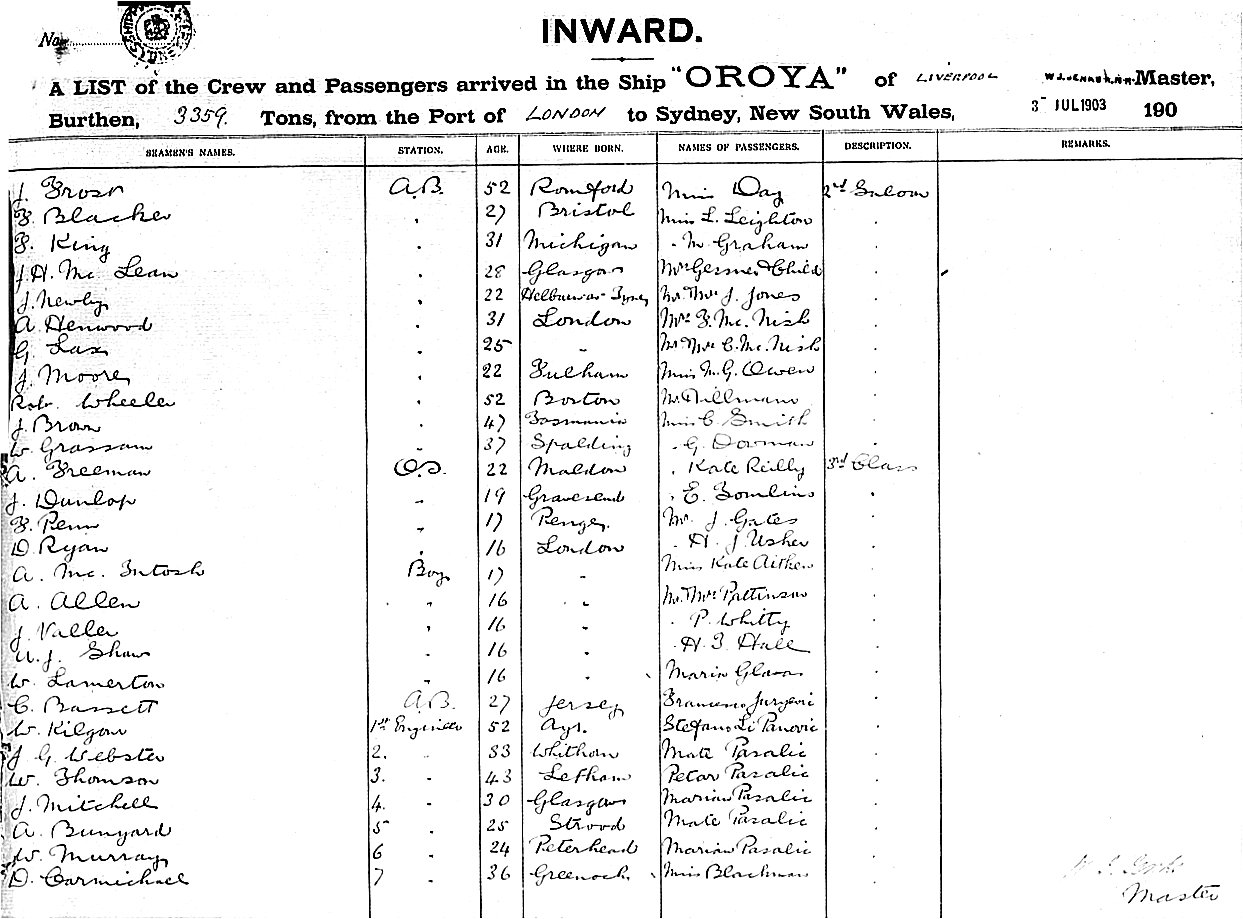 No.
INWARD.
A LIST of the Crew and Passengers arrived in the Ship "OROYA" of LIVERPOOL Master,
Burthen, 3359. Tons, from the Port of LONDON to Sydney, New South Wales, 3 JUL 1903 190
SEAMEN'S NAMES. STATION. AGE. WHERE BORN. NAMES OF PASSENGERS. DESCRIPTION. REMARKS.
J. Frost A.B. 52 Romford Miss Day 2nd Saloon
F. Blacker " 27 Bristol Miss L. Leighton "
F. King " 31 Michigan " M. Graham "
J. H. Mc Lean " 28 Glasgow Mrs Gesner & Child "
J. Newby " 22 Mr. Mrs J. Jones "
A. Henwood " 31 London Mrs F. Mc. Nish "
G. Lax " 25 " Mr. Mrs C. Mc. Nish "
J. Moore " 22 Fulham Miss M. G. Owen "
Robt. Wheeler " 52 Boston Mr. Tillman "
J. Brown " 47 Tasmania Miss C. Smith "
W. Grassam " 37 Spalding " G. Dowman "
A. Freeman O.S. 22 Maldon " Kate Reilly 3rd Class
J. Dunlop " 19 Gravesend " E. Tomlins "
F. Penn " 17 Penge. Mr. J. Gates "
D. Ryan " 16 London " H. J Usher "
A. Mc. Intosh Boy 17 " Miss Kate Aitken "
A. Allen " 16 " Mr. Mrs Pattinson "
J. Valler " 16 " " P. Whitty "
W. J. Shaw " 16 " " H. J. Hall "
W. Lamerton " 16 " Maria Glavas "
C. Bassett A.B. 27 Jersey Francesco Jurjevic "
W. Kilgour 1st Engineer 52 Ayr. Stefano Li Panovic "
J G. Webster 2. " 33 Whithorn Mate Pasalic "
W. Thomson 3. " 43 Letham Petar Pasalic "
J. Mitchell 4. " 30 Glasgow Marian Pasalic "
A. Bunyard 5 " 25 Strood Mate Pasalic "
W. Murray 6 " 24 Peterhead Marian Pasalic "
D. Carmichael 7 " 36 Greenock. Miss Blackman "
Master